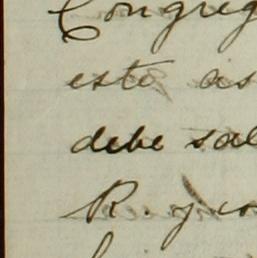 Congreg
este as
debe sal
R. y co